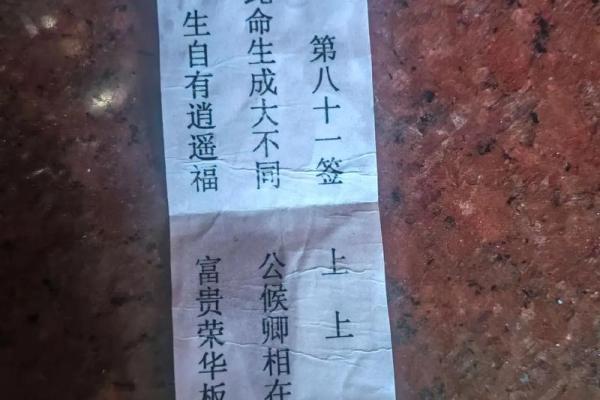 第八十一签 上上
此命生成大不同 公候卿相在
生自有逍遥福 富贵荣华板